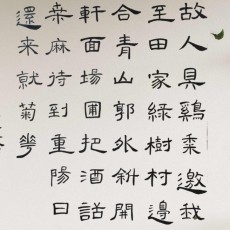 故人具鷄黍邀我
至田家緑樹村邊
合青山郭外斜開
軒面場圃把酒話
桑麻待到重陽日
還来就菊花